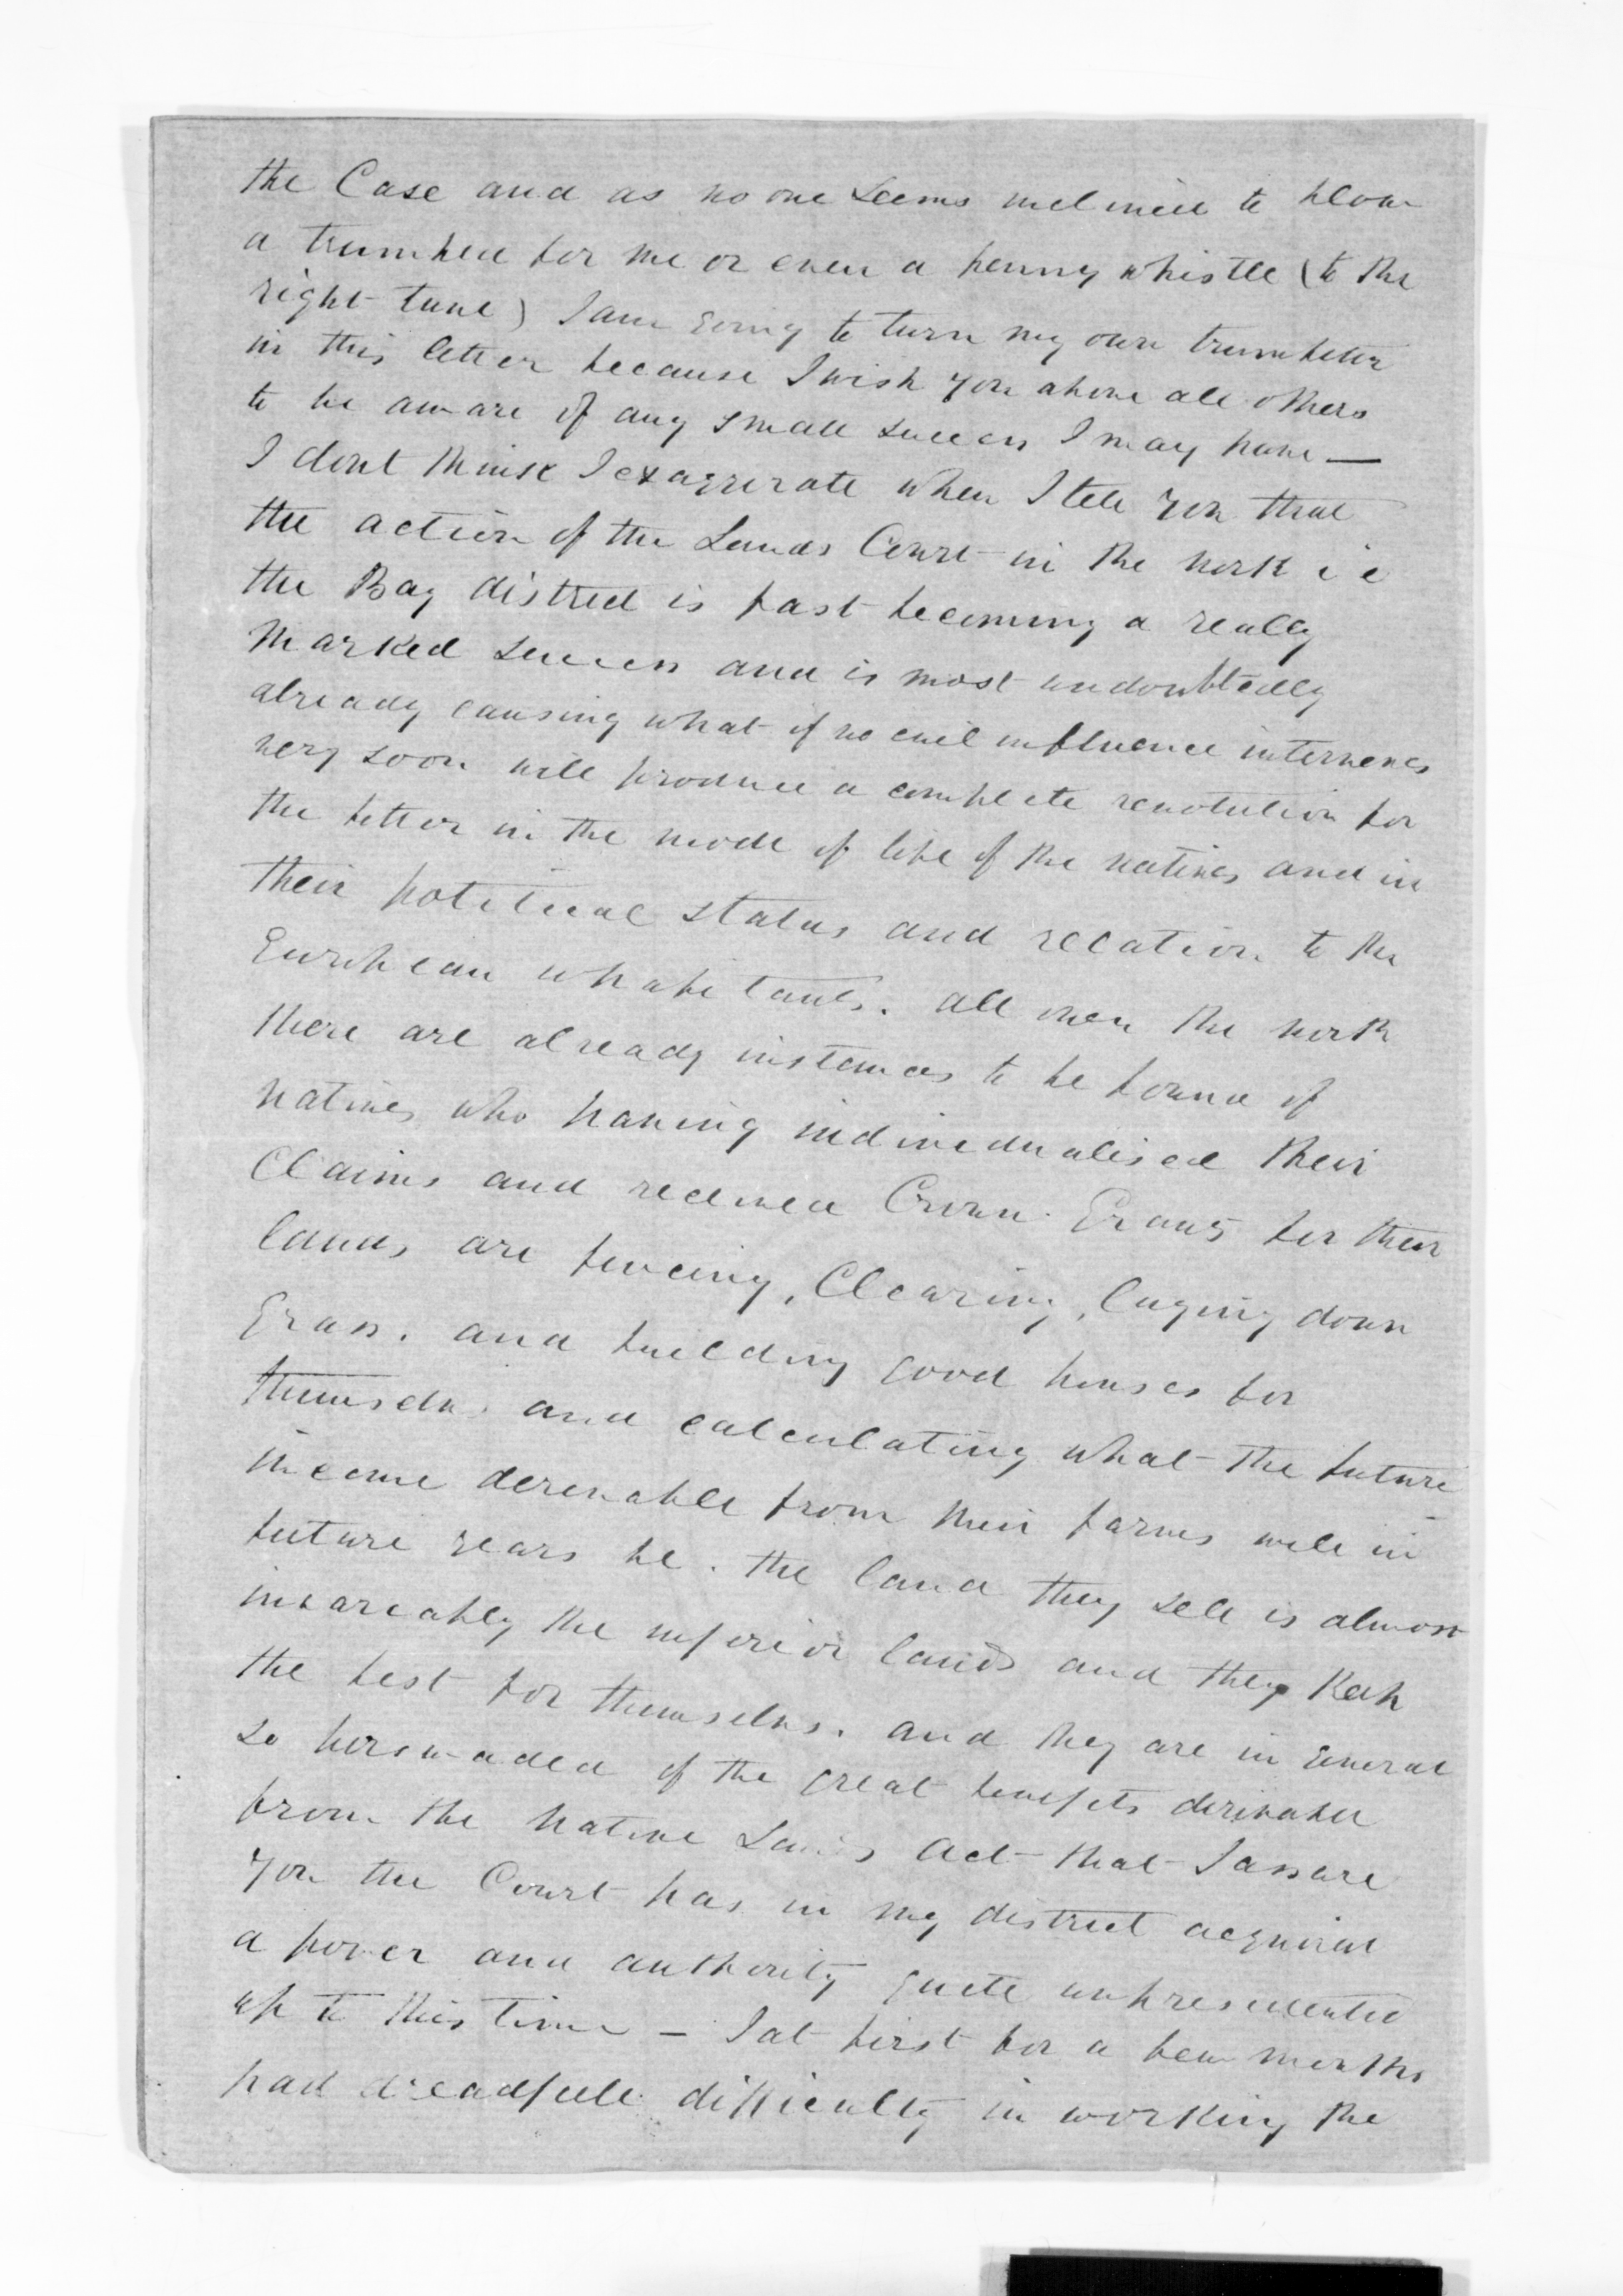 the Case and as no one seems inclined to blow
a trumpet for me or even a penny whistle (to the
right tune) I am going to turn my own trumpeter
in this letter because I wish you above all others
to be aware of any small success I may have —
I dont think I exaggerate when I tell you that
the action of the Lands Court in the north i e
the Bay district is fast becoming a really
marked success and is most undoubtedly
already causing what if no evil influence intervenes
very soon will produce a complete revolution for
the better in the mode of life of the natives and in
their political status and relation to the
European inhabitants. all over the north
there are already instances to be found of
natives who having individualised their
Claims and received Crown Grants for their
lands are fencing, Clearing, laying down
Grass, and building good houses for
themselves and calculating what the future
income derivable from their farms will in
future years be. the land they sell is almost
invariably the inferior lands and they keep
the best for themselves. and they are in general
so perswaded of the great benefits derivable
from the Native Lands Act that I assure
you the Court has in my district acquired
a power and authority quite unpresedented
up to this time — I at first for a few months
had dreadfull difficulty in working the